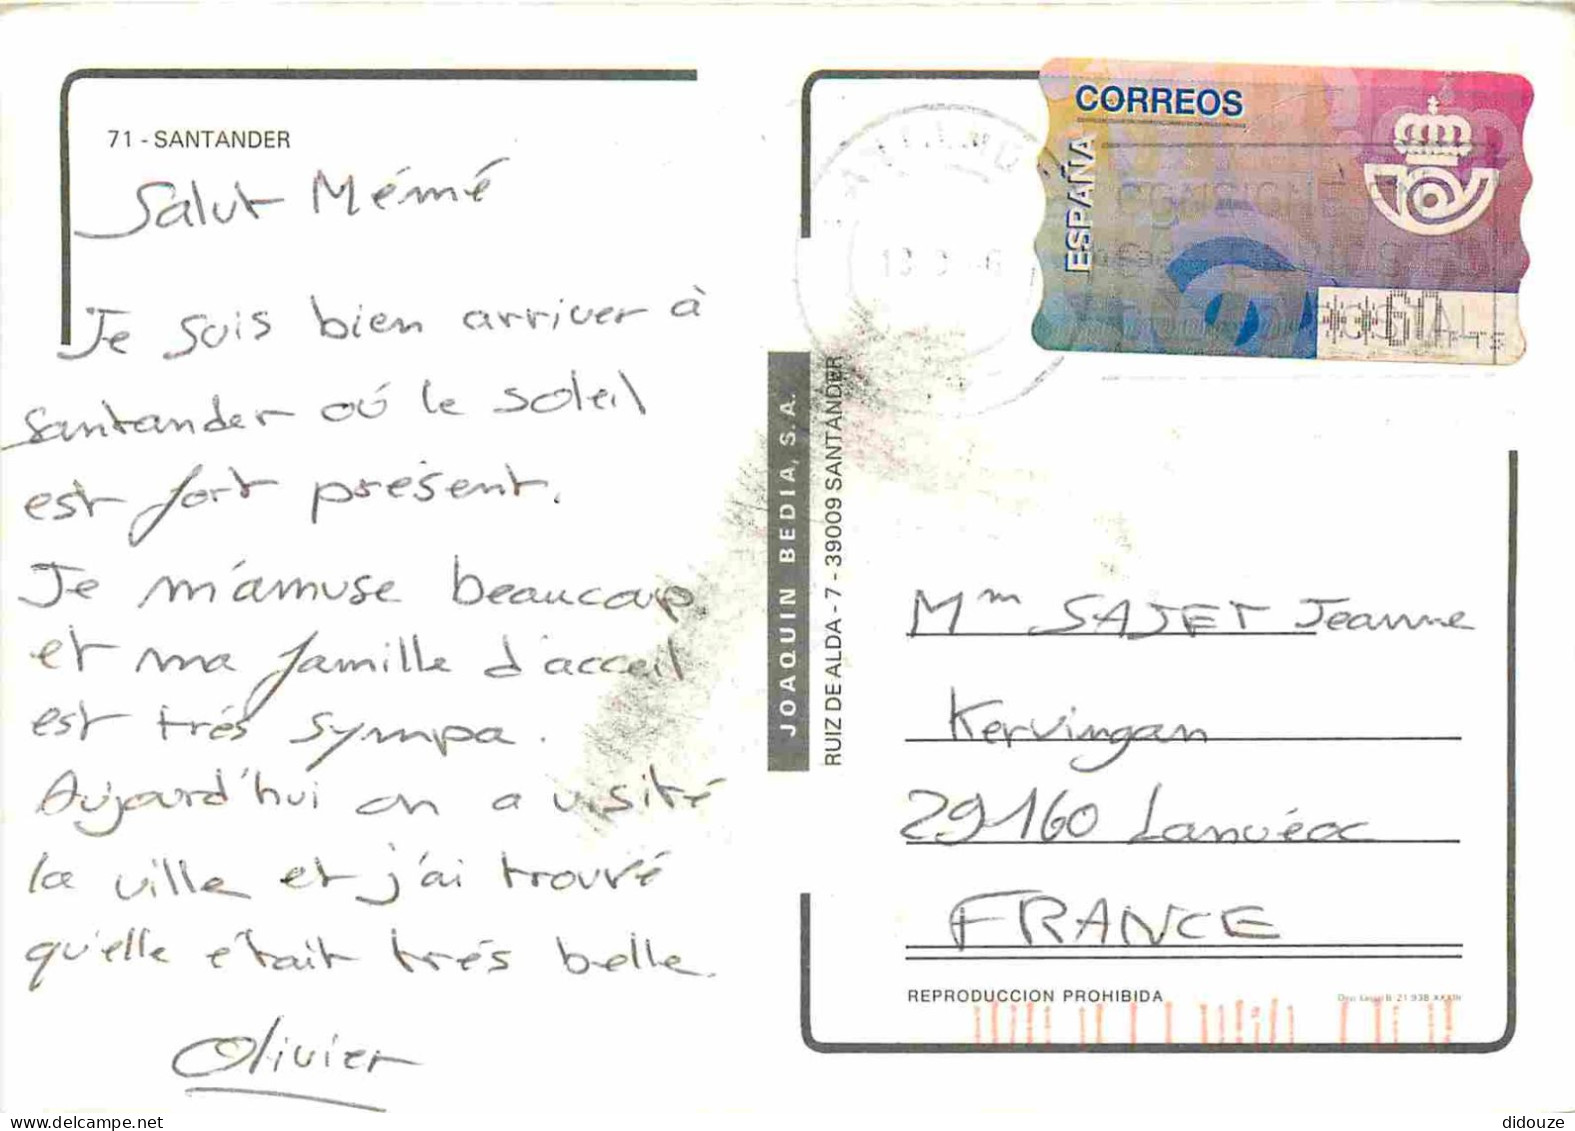 71 - SANTANDER
Salut Mémé
Je suis bien arriver à
Santander où le soleil
est fort présent.
Je m'amuse beaucoup
et ma famille d'acceil
est trés sympa.
Aujourd'hui on a visité
la ville et j'ai trouvé
qu'elle était trés belle.
Olivier
JOAQUIN BEDIA, S.A.
RUIZ DE ALDA - 7 - 39009 SANTANDER
CORREOS
ESPAÑA
CONSIGNE
**60
PTS
Mm SAJET Jeanne
Kervingan
29160 Lanvéoc
FRANCE
REPRODUCCION PROHIBIDA
didouze